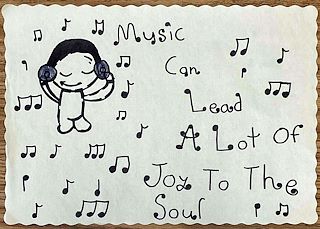 Music
Can
Lead
A Lot Of
Joy To The
Soul